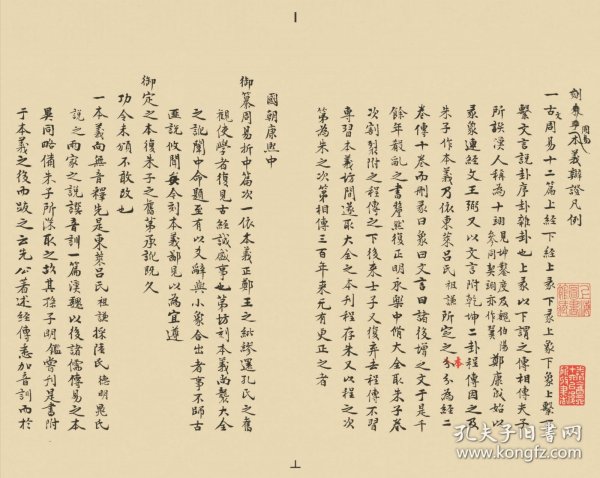 刻周易本義辯證凡例
一古文周易十二篇上經下經上彖下彖上象下象上繫下
繫文言說卦序卦雜卦也上彖以下謂之傳相傳夫子
所譔漢人稱為十翊見坤鑿度及魏伯陽參同契翊亦作翼鄭康成始以
彖象連經文王弼又以文言附乾坤二卦程傳因之及
朱子作本義乃依東萊呂氏祖謙所定之分為經二
卷傳十卷而刑彖曰象曰文言曰諸後增之文于是千
餘年殽亂之書釐然復正明永樂中脩大全取朱子卷
次割裂附之程傳之下後來士子又復弃去程傳不習
專習本義坊間遂取大全之本刊程存朱又以程之次
第為朱之次第相傳三百年來无有更正之者
國朝康熙中
御纂周易折中篇次一依本義正鄭王之紕繆還孔氏之舊
觀使學者復見古經誠盛事也第坊刻本義尚襲大全
之訛闈中命題至有以爻辭與小象合出者事不師古
匪說攸聞今刻本義鄙見以為宜遵
御定之本復朱子之舊第承訛既久
功令未頒不敢改也
一本義向無音釋先是東萊呂氏祖謙採陸氏德明晁氏
說之兩家之說譔音訓一篇漢魏以後諸儒傳易之本
異同略備朱子所深取之故其孫子明鑑嘗刊是書附
于本義之後而跋之云先公著述經傳悉加音訓而於
孔夫子旧书网
www.kongfz.com